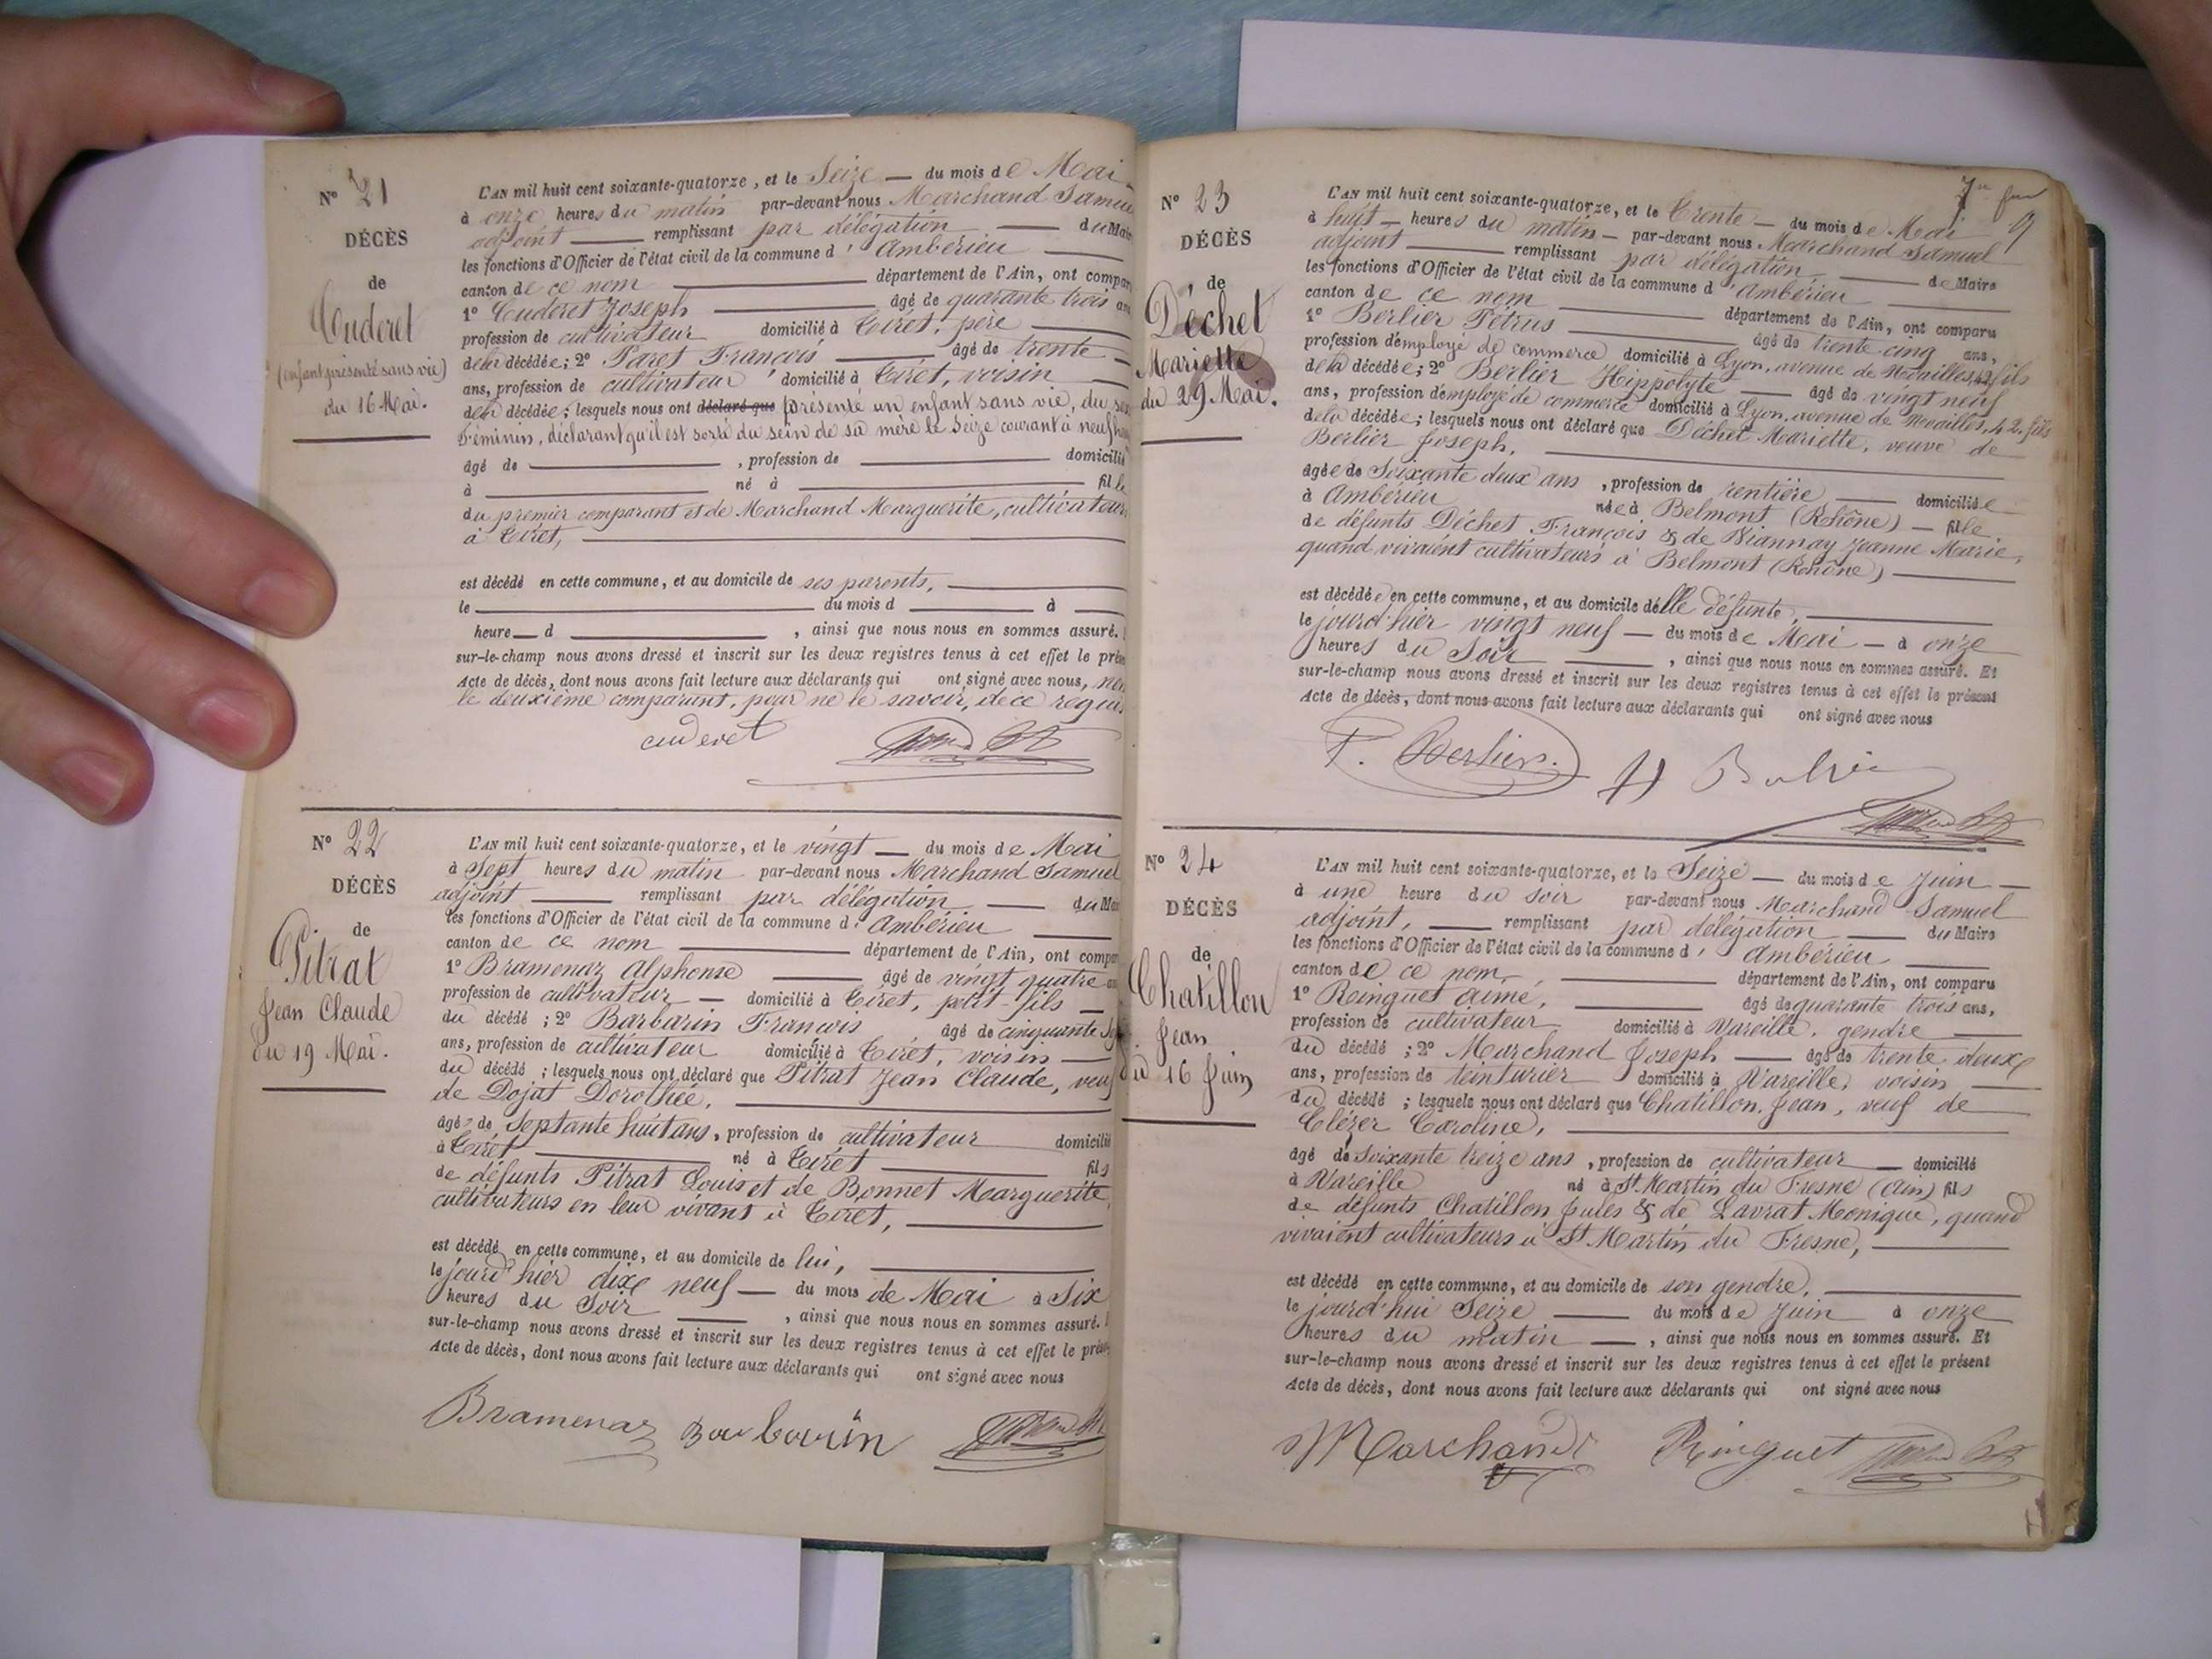 N° 21
DÉCÈS
de
Cuderet
(enfant présenté sans vie)
du 16 Mai.
L'AN mil huit cent soixante-quatorze, et le Seize — du mois de Mai
à onze heures du matin par-devant nous Marchand Samuel
adjoint — remplissant par délégation — du Maire
les fonctions d'Officier de l'état civil de la commune d'Ambérieu
canton de ce nom — département de l'Ain, ont comparu
1° Cuderet Joseph — âgé de quarante trois ans
profession de cultivateur domicilié à Tiret, père
de la décédée; 2° Paret François — âgé de trente
ans, profession de cultivateur domicilié à Tiret, voisin
de la décédée; lesquels nous ont déclaré que présenté un enfant sans vie, du sexe
Féminin, déclarant qu'il est sorti du sein de sa mère le Seize courant à neuf
âgé de — , profession de — domicilié
à — né à — fille
du premier comparant et de Marchand Marguerite, cultivateurs
à Tiret,
est décédé en cette commune, et au domicile de ses parents,
le — du mois d — à
heure — d — , ainsi que nous nous en sommes assuré.
sur-le-champ nous avons dressé et inscrit sur les deux registres tenus à cet effet le présent
Acte de décès, dont nous avons fait lecture aux déclarants qui ont signé avec nous, non
le deuxième comparant, pour ne le savoir, de ce requis
cuderet
N° 22
DÉCÈS
de
Pitrat
Jean Claude
du 19 Mai.
L'AN mil huit cent soixante-quatorze, et le vingt — du mois de Mai
à Sept heures du matin par-devant nous Marchand Samuel
adjoint — remplissant par délégation — du Maire
les fonctions d'Officier de l'état civil de la commune d'Ambérieu
canton de ce nom — département de l'Ain, ont comparu
1° Bramenaz Alphonse — âgé de vingt quatre ans
profession de cultivateur — domicilié à Tiret, petit fils
du décédé; 2° Barbarin François âgé de cinquante
ans, profession de cultivateur domicilié à Tiret, voisin
du décédé; lesquels nous ont déclaré que Pitrat Jean Claude, veuf
de Dojat Dorothée,
âgé de Septante huit ans, profession de cultivateur domicilié
à Tiret — né à Tiret — fils
de défunts Pitrat Louis et de Bonnet Marguerite,
cultivateurs en leur vivant à Tiret,
est décédé en cette commune, et au domicile de lui,
le jourd'hier dixe neuf — du mois de Mai à Six
heures du Soir — , ainsi que nous nous en sommes assuré.
sur-le-champ nous avons dressé et inscrit sur les deux registres tenus à cet effet le présent
Acte de décès, dont nous avons fait lecture aux déclarants qui ont signé avec nous
Bramenaz Barbarin
9
N° 23
DÉCÈS
de
Déchet
Mariette
du 29 Mai.
L'AN mil huit cent soixante-quatorze, et le Trente — du mois de Mai
à huit — heures du matin — par-devant nous Marchand Samuel
adjoint — remplissant par délégation — de Maire
les fonctions d'Officier de l'état civil de la commune d'Ambérieu
canton de ce nom — département de l'Ain, ont comparu
1° Berlier Pétrus — âgé de trente cinq ans,
profession d'employé de commerce domicilié à Lyon, avenue de Noailles, 42, fils
de la décédée; 2° Berlier Hippolyte — âgé de vingt neuf
ans, profession d'employé de commerce domicilié à Lyon, avenue de Noailles, 42, fils
de la décédée; lesquels nous ont déclaré que Déchet Mariette, veuve de
Berlier Joseph,
âgée de Soixante deux ans , profession de rentière — domiciliée
à Ambérieu née à Belmont (Rhône) — fille
de défunts Déchet François & de Viannay Jeanne Marie,
quand vivaient cultivateurs à Belmont (Rhône)
est décédée en cette commune, et au domicile d'elle défunte,
le jourd'hier vingt neuf — du mois de Mai — à onze
heures du Soir — , ainsi que nous nous en sommes assuré. Et
sur-le-champ nous avons dressé et inscrit sur les deux registres tenus à cet effet le présent
Acte de décès, dont nous avons fait lecture aux déclarants qui ont signé avec nous
P. Berlier. H Berlier
N° 24
DÉCÈS
de
Chatillon
Jean
du 16 Juin
L'AN mil huit cent soixante-quatorze, et le Seize — du mois de Juin
à une heure du soir par-devant nous Marchand Samuel
adjoint, — remplissant par délégation — du Maire
les fonctions d'Officier de l'état civil de la commune d'Ambérieu
canton de ce nom — département de l'Ain, ont comparu
1° Ringuet Aimé, — âgé de quarante trois ans,
profession de cultivateur domicilié à Vareille, gendre
du décédé; 2° Marchand Joseph — âgé de trente deux
ans, profession de teinturier domicilié à Vareille, voisin
du décédé; lesquels nous ont déclaré que Chatillon Jean, veuf de
Clézer Caroline,
âgé de soixante treize ans , profession de cultivateur — domicilié
à Vareille né à St Martin du Fresne (Ain) fils
de défunts Chatillon Jules & de Lavrat Monique, quand
vivaient cultivateurs à St Martin du Fresne,
est décédé en cette commune, et au domicile de son gendre,
le jourd'hui Seize — du mois de Juin à onze
heures du matin — , ainsi que nous nous en sommes assuré. Et
sur-le-champ nous avons dressé et inscrit sur les deux registres tenus à cet effet le présent
Acte de décès, dont nous avons fait lecture aux déclarants qui ont signé avec nous
Marchand Ringuet